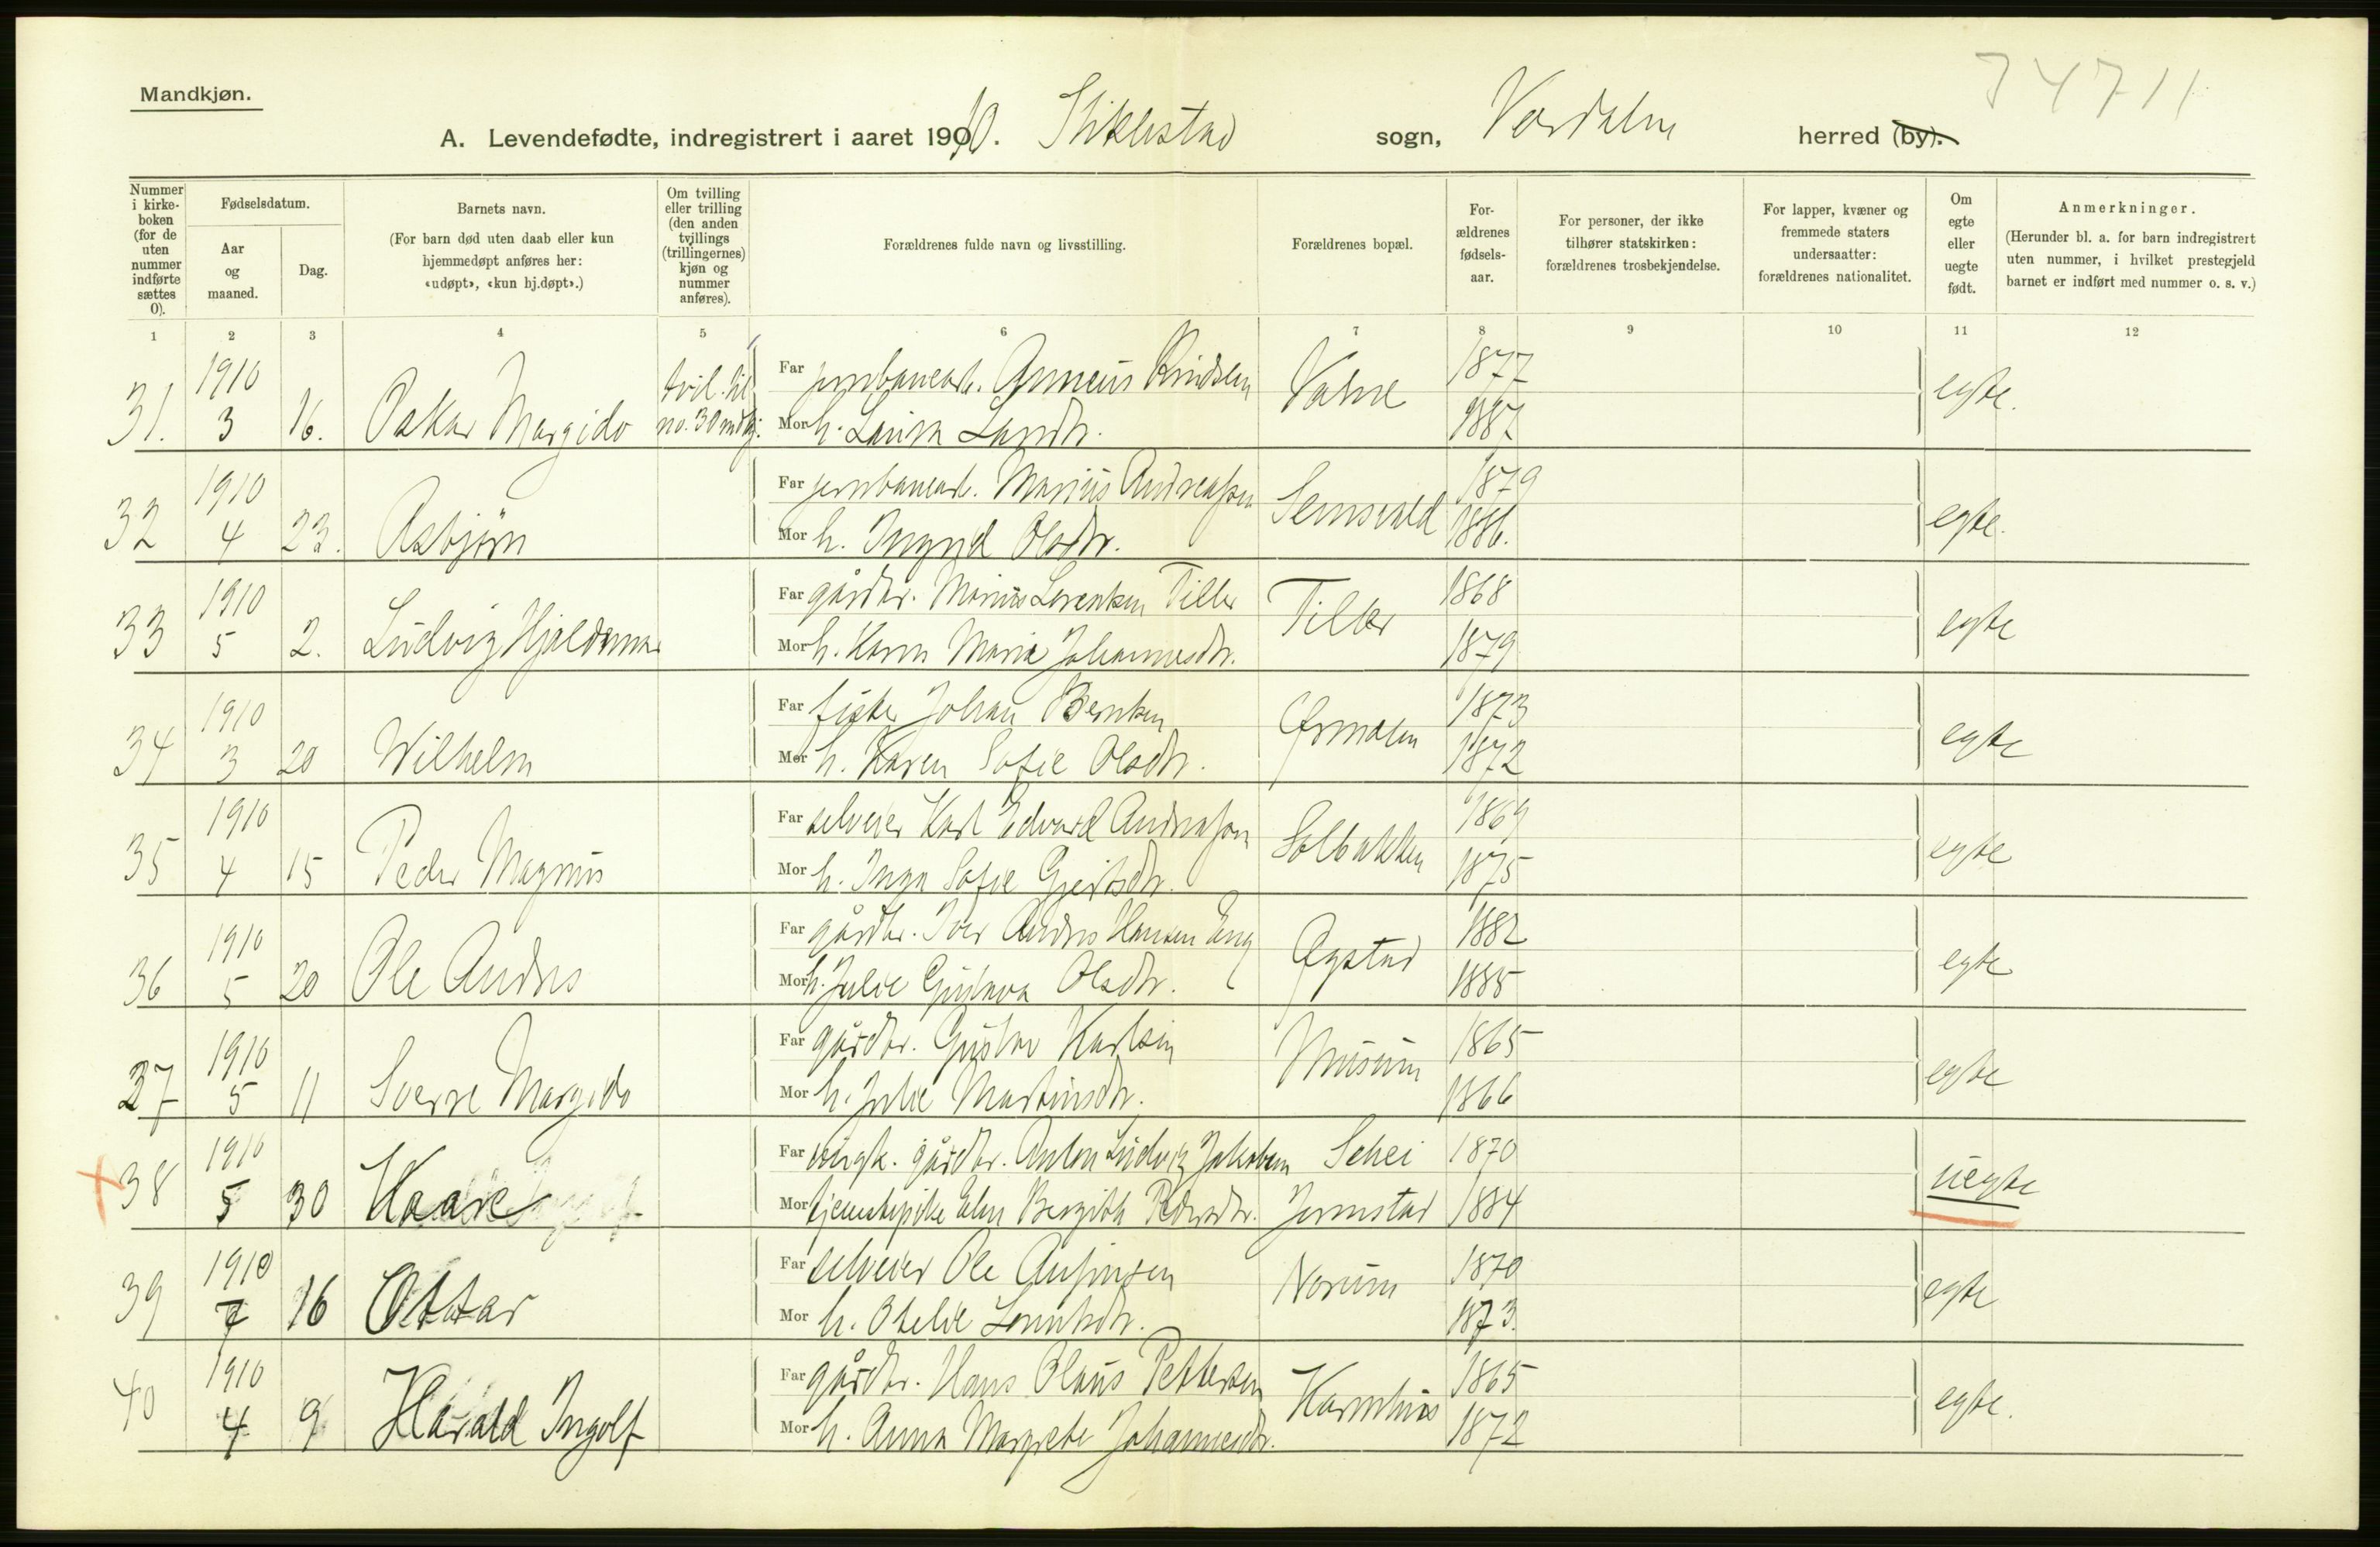 74711
Mandkjøn.
A. Levendefødte, indregistrert i aaret 1910. Stiklestad sogn, Verdalen herred (by).
Nummer i kirke-boken (for de uten nummer indførte sættes 0).
Fødselsdatum.
Aar og maaned.
Dag.
Barnets navn.
(For barn død uten daab eller kun hjemmedøpt anføres her: «udøpt», «kun hj.døpt».)
Om tvilling eller trilling (den anden tvillings (trillingernes) kjøn og nummer anføres).
Forældrenes fulde navn og livsstilling.
Forældrenes bopæl.
For-ældrenes fødsels-aar.
For personer, der ikke tilhører statskirken: forældrenes trosbekjendelse.
For lapper, kvæner og fremmede staters undersaatter: forældrenes nationalitet.
Om egte eller uegte født.
Anmerkninger.
(Herunder bl. a. for barn indregistrert uten nummer, i hvilket prestegjeld barnet er indført med nummer o. s. v.)
1 2 3 4 5 6 7 8 9 10 11 12
31. 1910 3 16. Oskar Margido tvil. til no. 30 mdkj. Far jernbanearb. Anneus Knudsen 1877 egte.
Mor h. Laura Larsdtr. 1887
32 1910 4 23. Asbjørn Far jernbanearb. Marius Andreassen Semsvald 1879 egte.
Mor h. Ingrid Olsdtr. 1886.
33 1910 5 2. Ludvig Hjaldmar Far gårdbr. Marius Lorentsen Tiller Tiller 1868 egte
Mor h. Karen Maria Johannesdtr. 1879
34 1910 3 20 Wilhelm Far fisker Johan Berntsen Ørmelen 1873 egte
Mor h. Karen Sofie Olsdtr. 1872
35 1910 4 15 Peder Magnus Far selveier Karl Edvard Andreassen Solbakken 1869 egte
Mor h. Inga Sofie Gjertsdtr. 1875
36 1910 5 20 Ole Andres Far gårdbr. Iver Andres Hansen Eng Øgstad 1882 egte
Mor h. Julie Gustava Olsdtr. 1885
37 1910 5 11 Sverre Margido Far gårdbr. Gustav Karlsen Musum 1865 egte
Mor h. Julie Martinsdtr. 1866
38 1910 5 30 Kaare Far ungk. gårdbr. Anton Ludvig Jakobsen Schei 1870 uegte
Mor tjenestepike Elen Bergitte Pedersdtr. Jermstad 1884
39 1910 7 16 Ottar Far selveier Ole Anfinsen Norum 1870 egte
Mor h. Otelie Lorntsdtr. 1873.
40 1910 4 9 Harald Ingolf Far gårdbr. Hans Olaus Pettersen Karmhus 1865 egte.
Mor h. Anna Margrete Johannesdtr. 1872